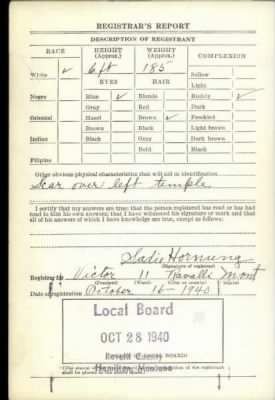 REGISTRAR'S REPORT
DESCRIPTION OF REGISTRANT
RACE HEIGHT (Approx.) WEIGHT (Approx.) COMPLEXION
White ✓ 6 ft 185 Sallow
EYES HAIR Light
Negro Blue ✓ Blonde Ruddy ✓
Gray Red Dark
Oriental Hazel Brown ✓ Freckled
Brown Black Light brown
Indian Black Gray Dark brown
Bald Black
Filipino
Other obvious physical characteristics that will aid in identification
Scar over left temple
I certify that my answers are true; that the person registered has read or has had
read to him his own answers; that I have witnessed his signature or mark and that
all of his answers of which I have knowledge are true, except as follows:
Sadie Hornung
(Signature of registrar)
Registrar for Victor 11 Ravalli Mont
(Precinct) (Ward) (City or county) (State)
Date of registration October 16 - 1940
Local Board
OCT 28 1940
Ravalli County
Hamilton, Montana
(STAMP OF LOCAL BOARD)